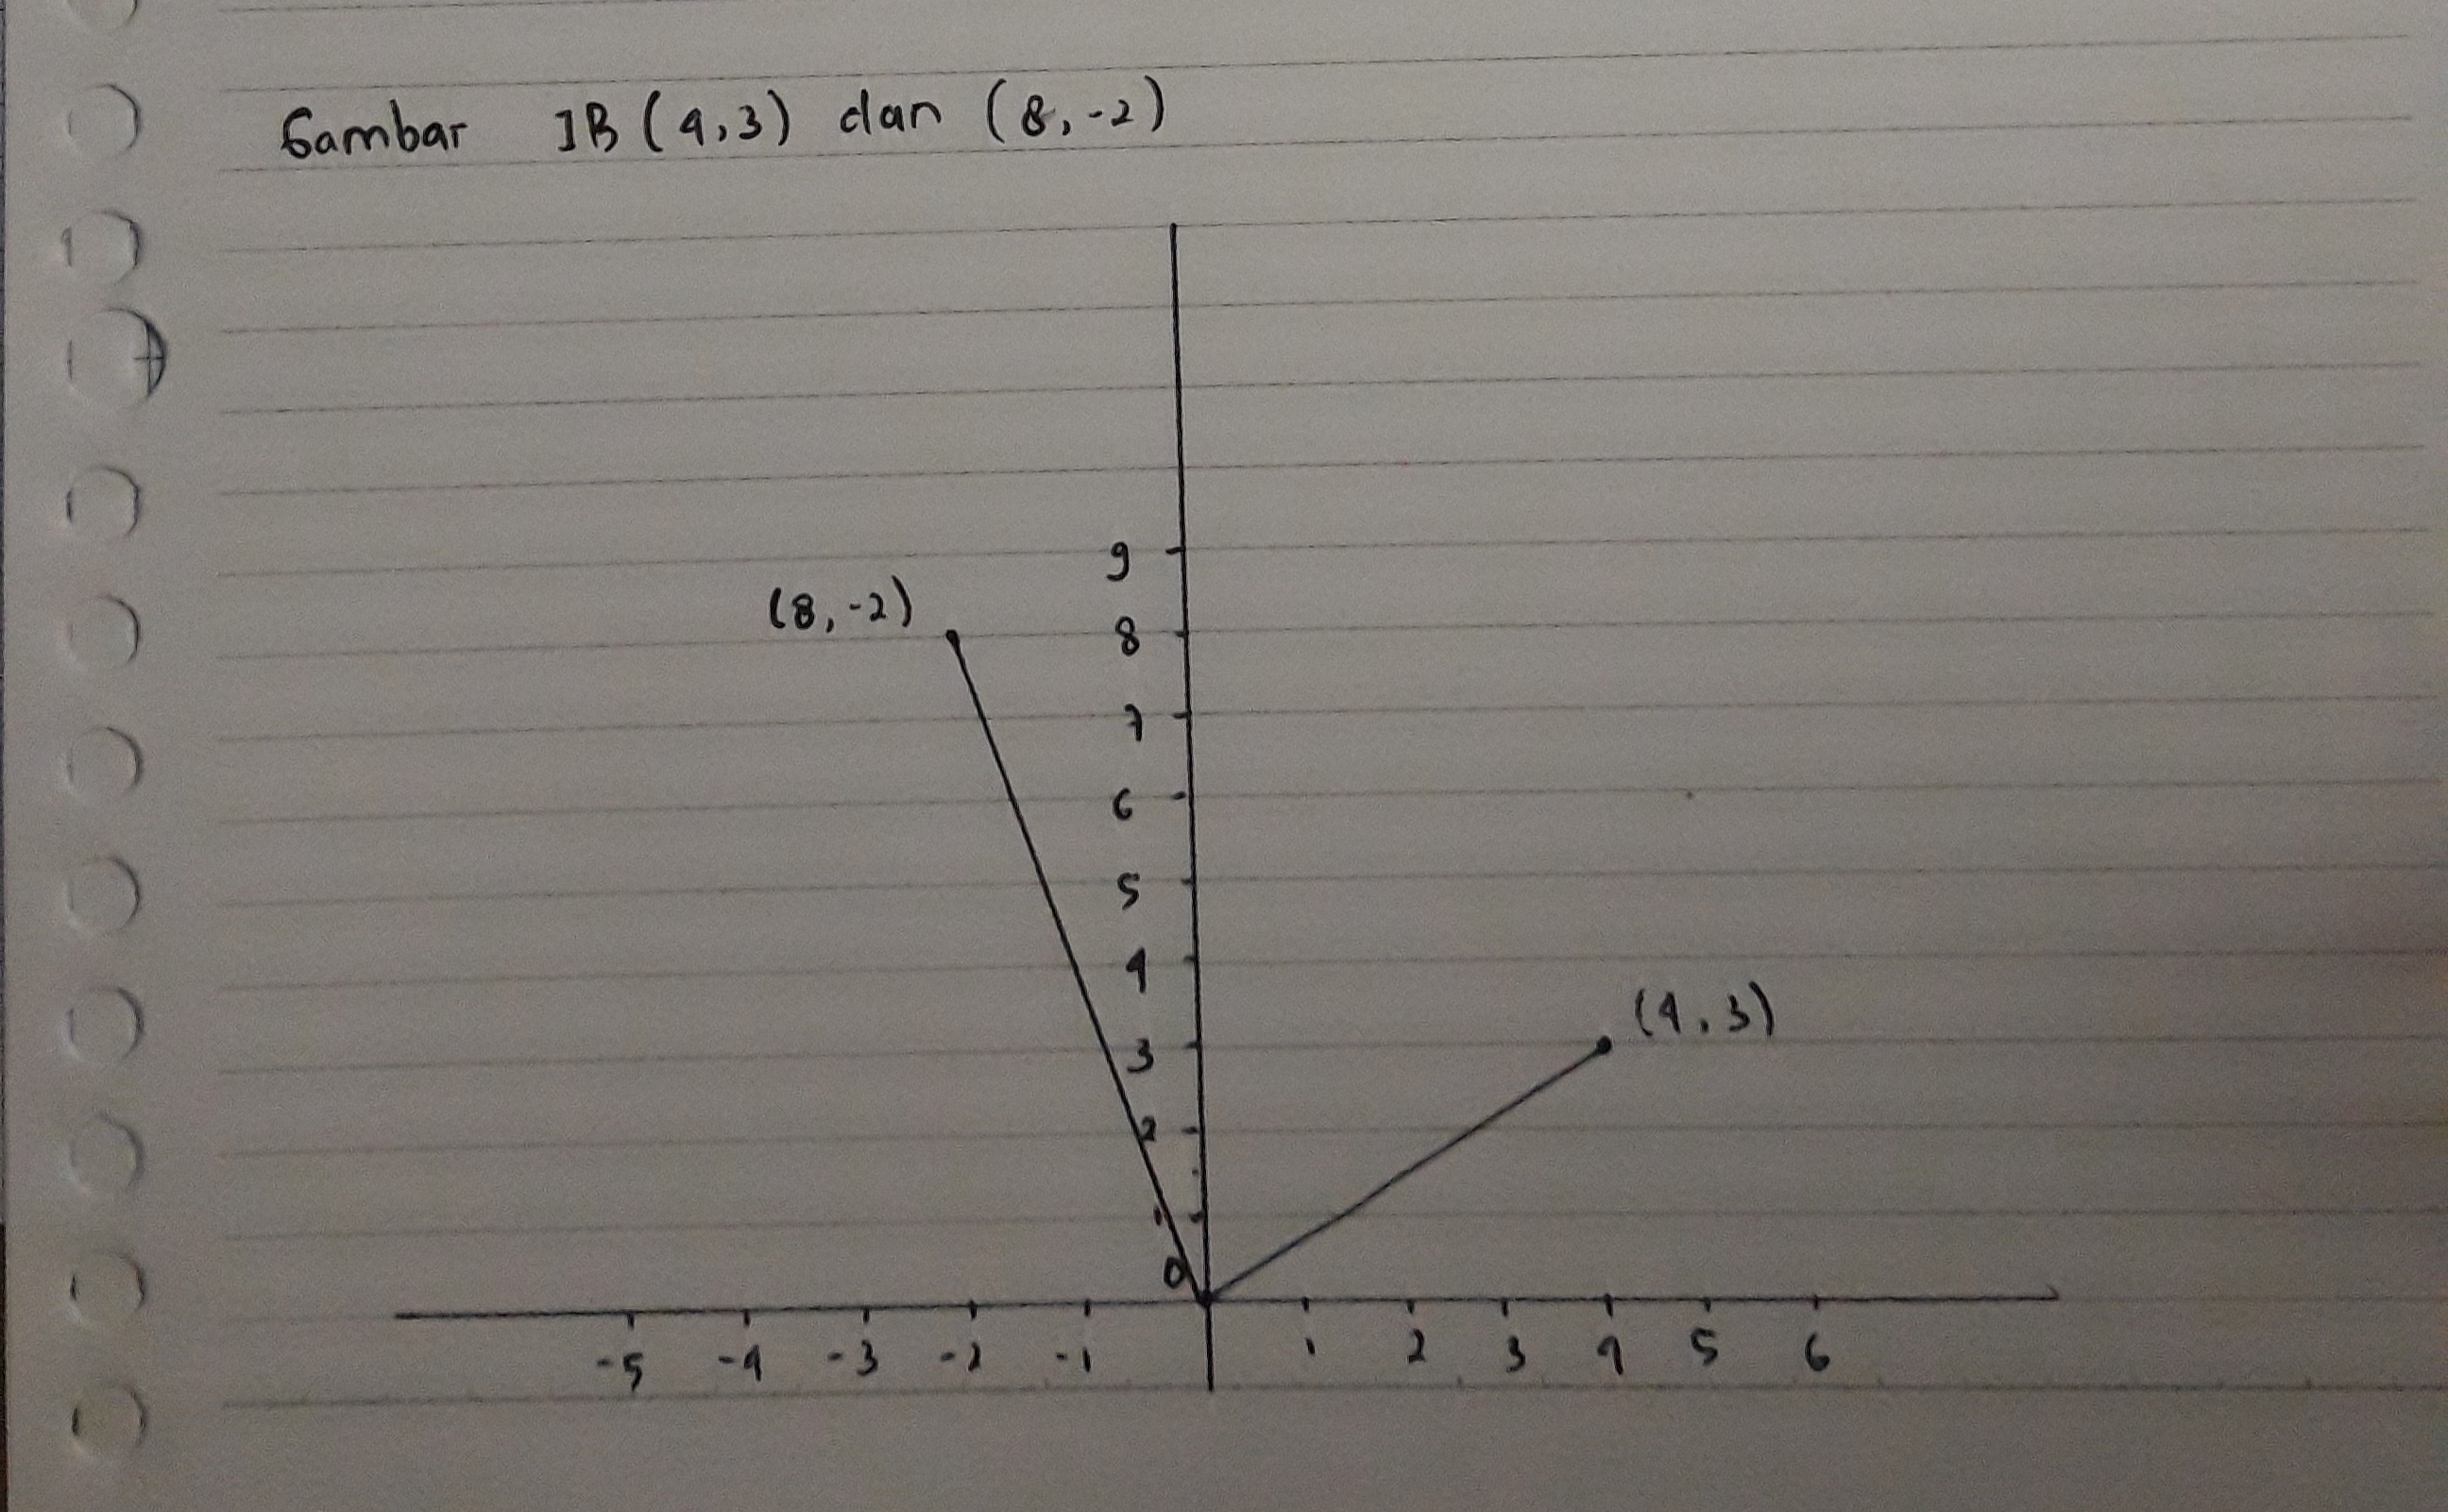 Gambar IB (4,3) dan (8,-2)
9
(8,-2)
8
7
6
5
4
(4,3)
3
2
1
0
-5 -4 -3 -2 -1 1 2 3 4 5 6